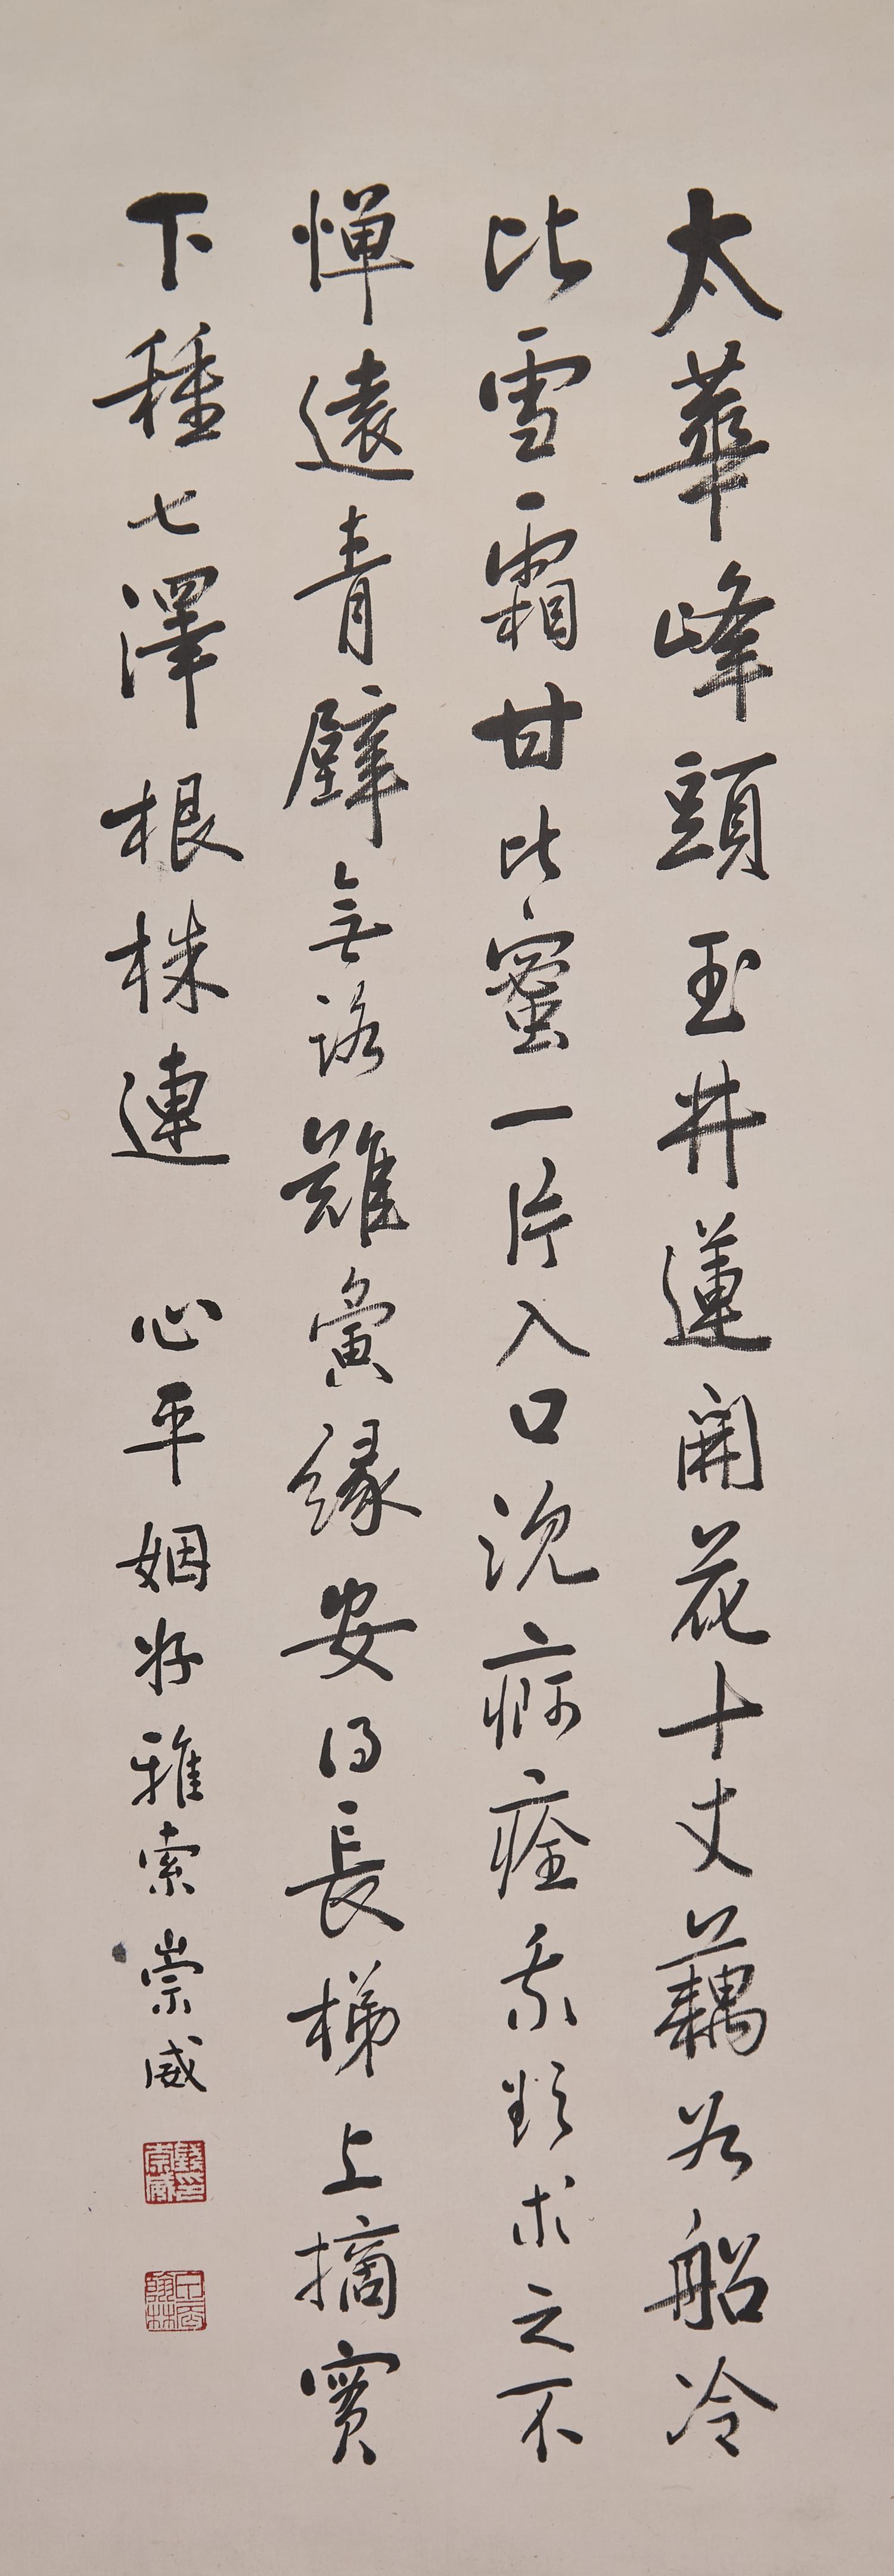 太華峰頭玉井蓮開花十丈藕如船冷
比雪霜甘比蜜一片入口沈痾痊我欲求之不
憚遠青壁無路難夤緣安得長梯上摘實
下種七澤根株連 心平姻好雅索 崇威
錢印崇威